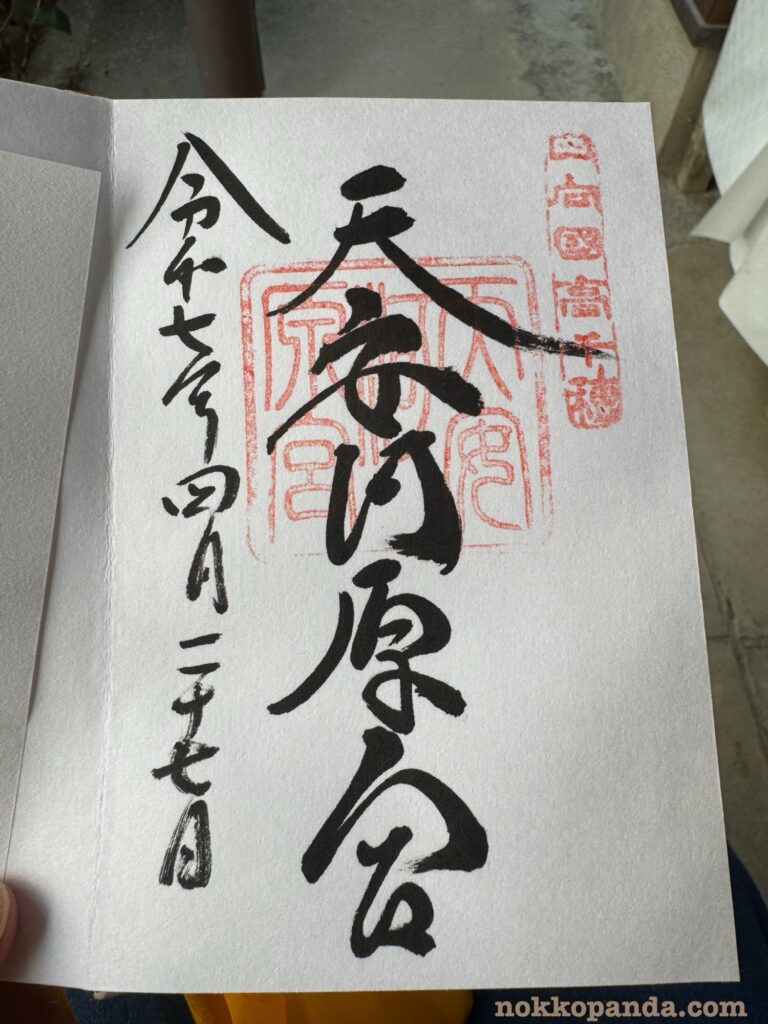 日向國高千穂
天安河原宮
天安河原宮
令和七年四月二十七日
nokkopanda.com